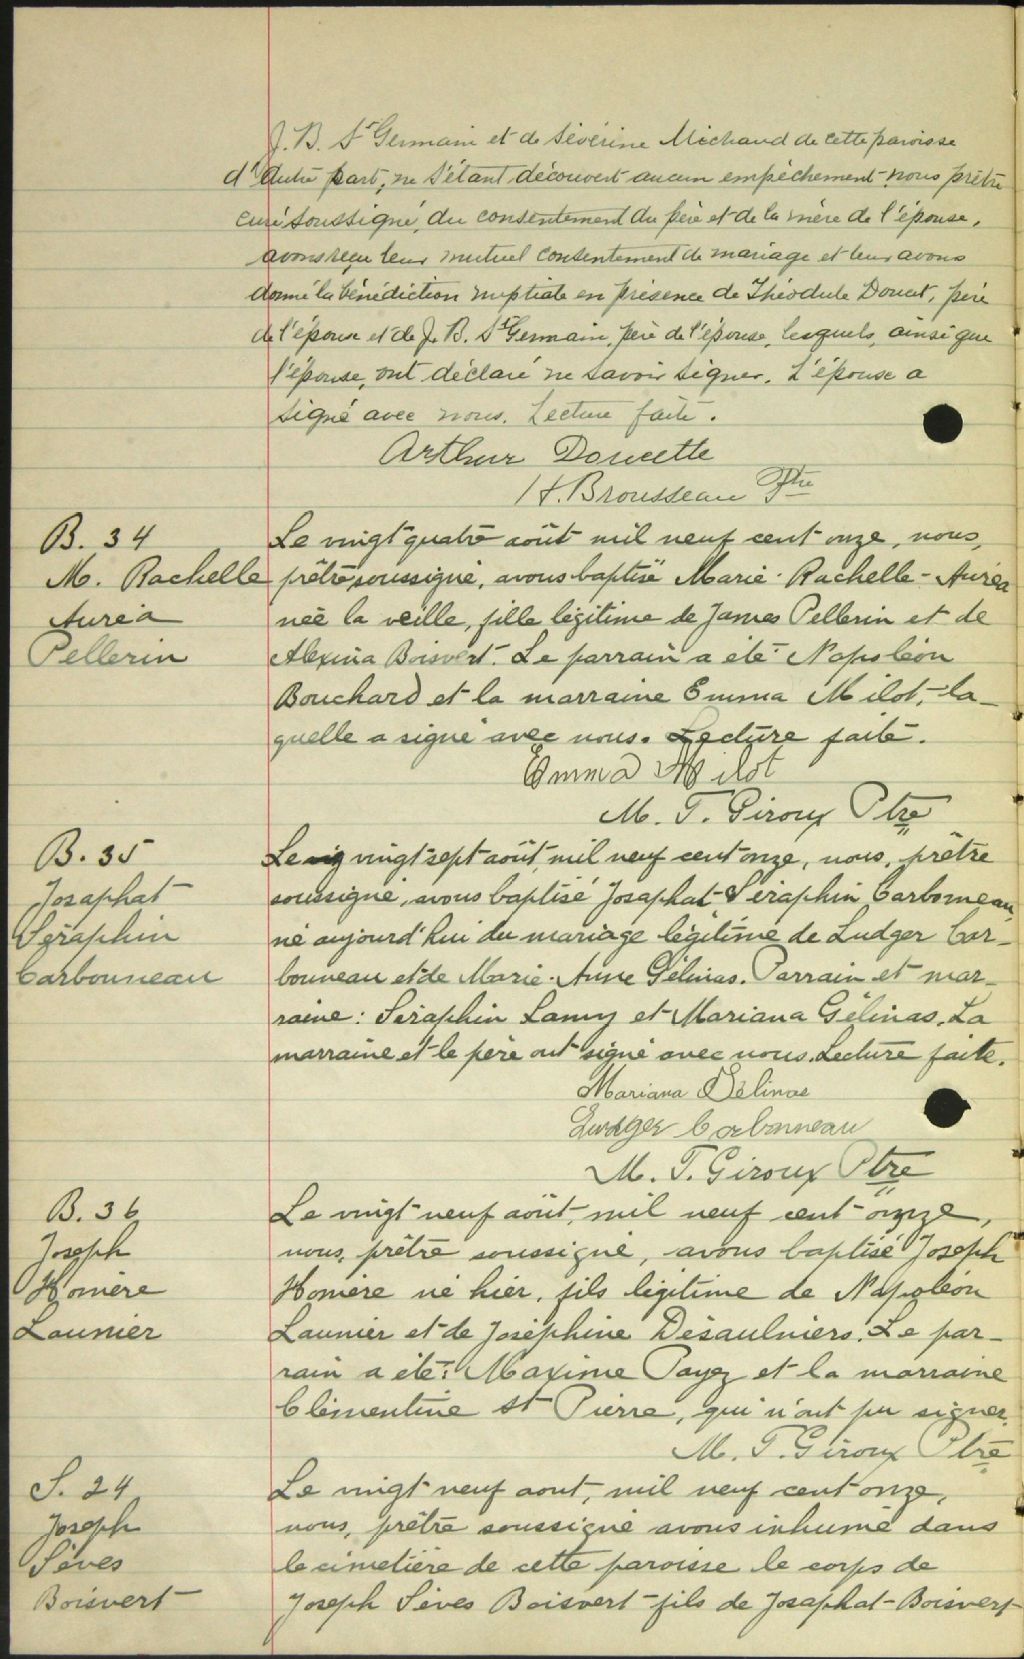 J. B. St Germain et de Sévérine Michaud de cette paroisse
d'autre part, ne s'étant découvert aucun empêchement, nous prêtre
curé soussigné, du consentement du père et de la mère de l'épouse,
avons reçu leur mutuel consentement de mariage et leur avons
donné la bénédiction nuptiale en présence de Théodule Doucet, père
de l'époux et de J. B. St Germain, père de l'épouse, lesquels, ainsi que
l'épouse, ont déclaré ne savoir signer. L'époux a
signé avec nous. Lecture faite.
Arthur Doucette
H. Brousseau Ptre
B. 34
M. Rachelle
Auréa
Pellerin
Le vingt quatre août mil neuf cent onze, nous,
prêtre soussigné, avons baptisé Marie-Rachelle-Auréa
née la veille, fille légitime de James Pellerin et de
Alexina Boisvert. Le parrain a été Napoléon
Bouchard et la marraine Emma Milot, la-
quelle a signé avec nous. Lecture faite.
Emma Milot
M. T. Giroux Ptre
B. 35
Josaphat
Séraphin
Carbonneau
Le vingt sept août, mil neuf cent onze, nous, prêtre
soussigné, avons baptisé Josaphat-Séraphin Carbonneau,
né aujourd'hui du mariage légitime de Ludger Car-
bonneau et de Marie-Anne Gélinas. Parrain et mar-
raine: Séraphin Lamy et Mariana Gélinas. La
marraine et le père ont signé avec nous. Lecture faite.
Mariana Gélinas
Ludger Carbonneau
M. T. Giroux Ptre
B. 36
Joseph
Homère
Launier
Le vingt neuf août, mil neuf cent onze,
nous, prêtre soussigné, avons baptisé Joseph
Homère né hier, fils légitime de Napoléon
Launier et de Joséphine Désaulniers. Le par-
rain a été: Maxime Payez et la marraine
Clémentine St Pierre, qui n'ont pu signer.
M. T. Giroux Ptre
S. 24
Joseph
Sèves
Boisvert
Le vingt neuf aout, mil neuf cent onze,
nous, prêtre soussigné avons inhumé dans
le cimetière de cette paroisse le corps de
Joseph Sèves Boisvert fils de Josaphat Boisvert